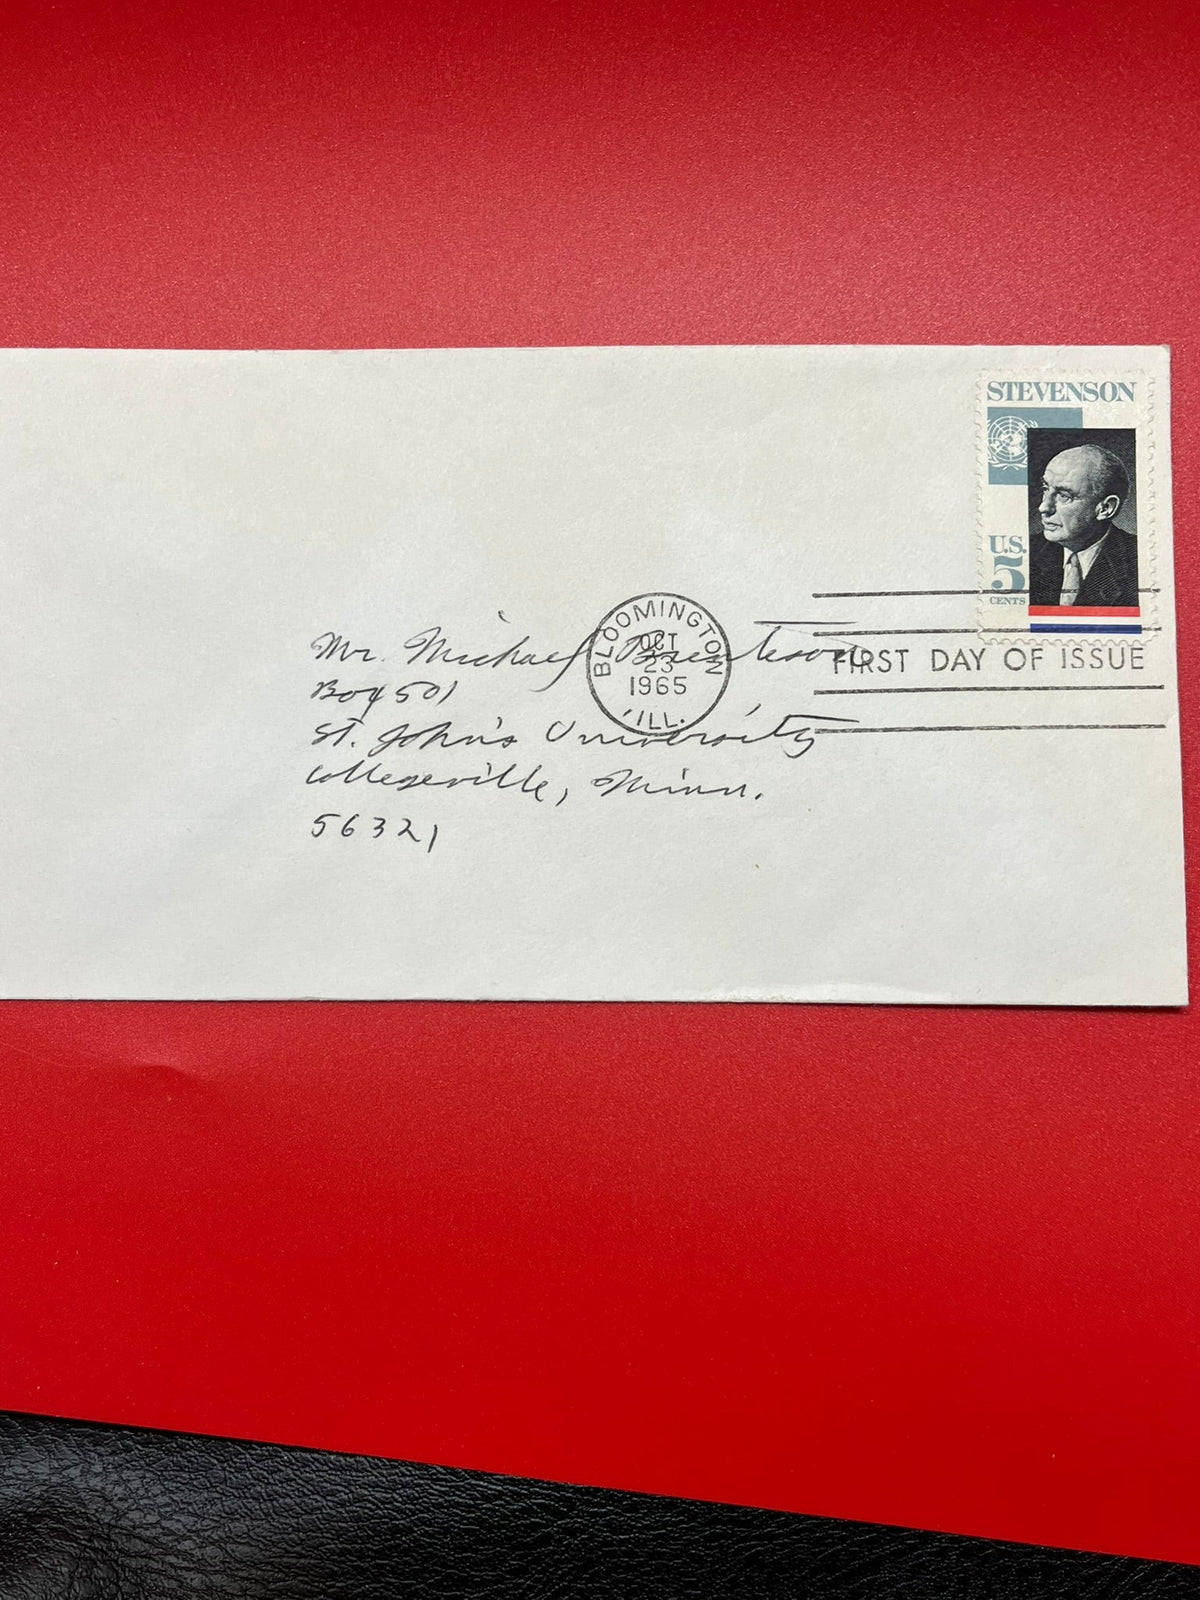 STEVENSON
U.S.
5
CENTS
BLOOMINGTON
OCT
23
1965
ILL.
FIRST DAY OF ISSUE
Mr. Michael
Box 501
St. John's University
Collegeville, Minn.
56321